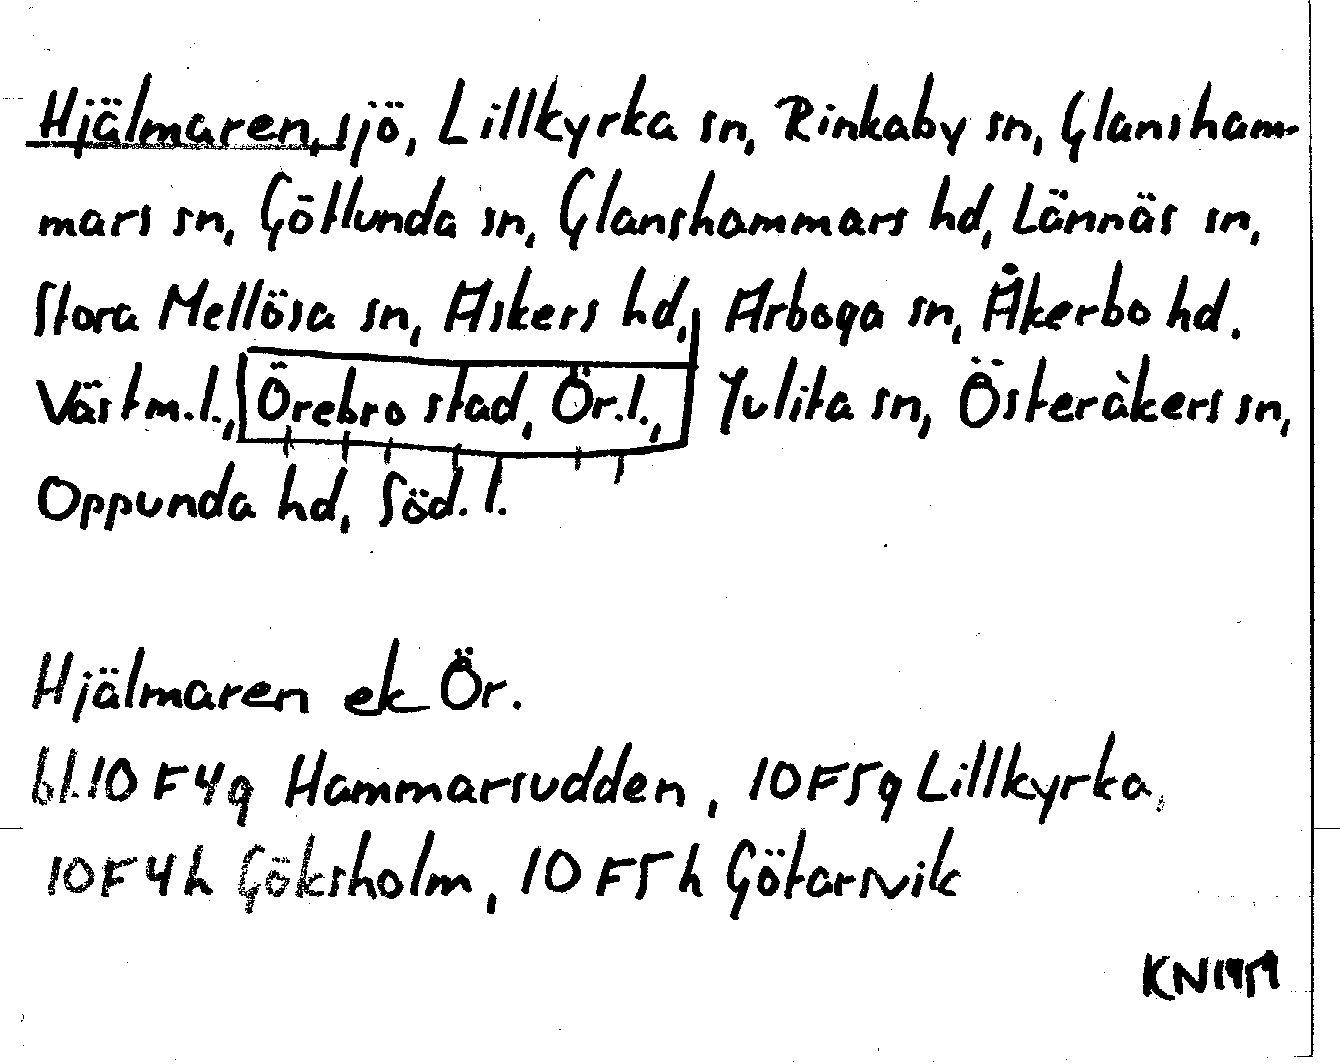 Hjälmaren, sjö, Lillkyrka sn, Rinkaby sn, Glansham-
mars sn, Götlunda sn, Glanshammars hd, Lännäs sn,
Stora Mellösa sn, Askers hd, Arboga sn, Åkerbo hd.
Västm.l., Örebro stad, Ör.l., Julita sn, Österåkers sn,
Oppunda hd, Söd.l.
Hjälmaren ek Ör.
bl.10 F 4g Hammarsudden, 10 F 5g Lillkyrka,
10 F 4h Göksholm, 10 F 5h Götarsvik
KN 1959